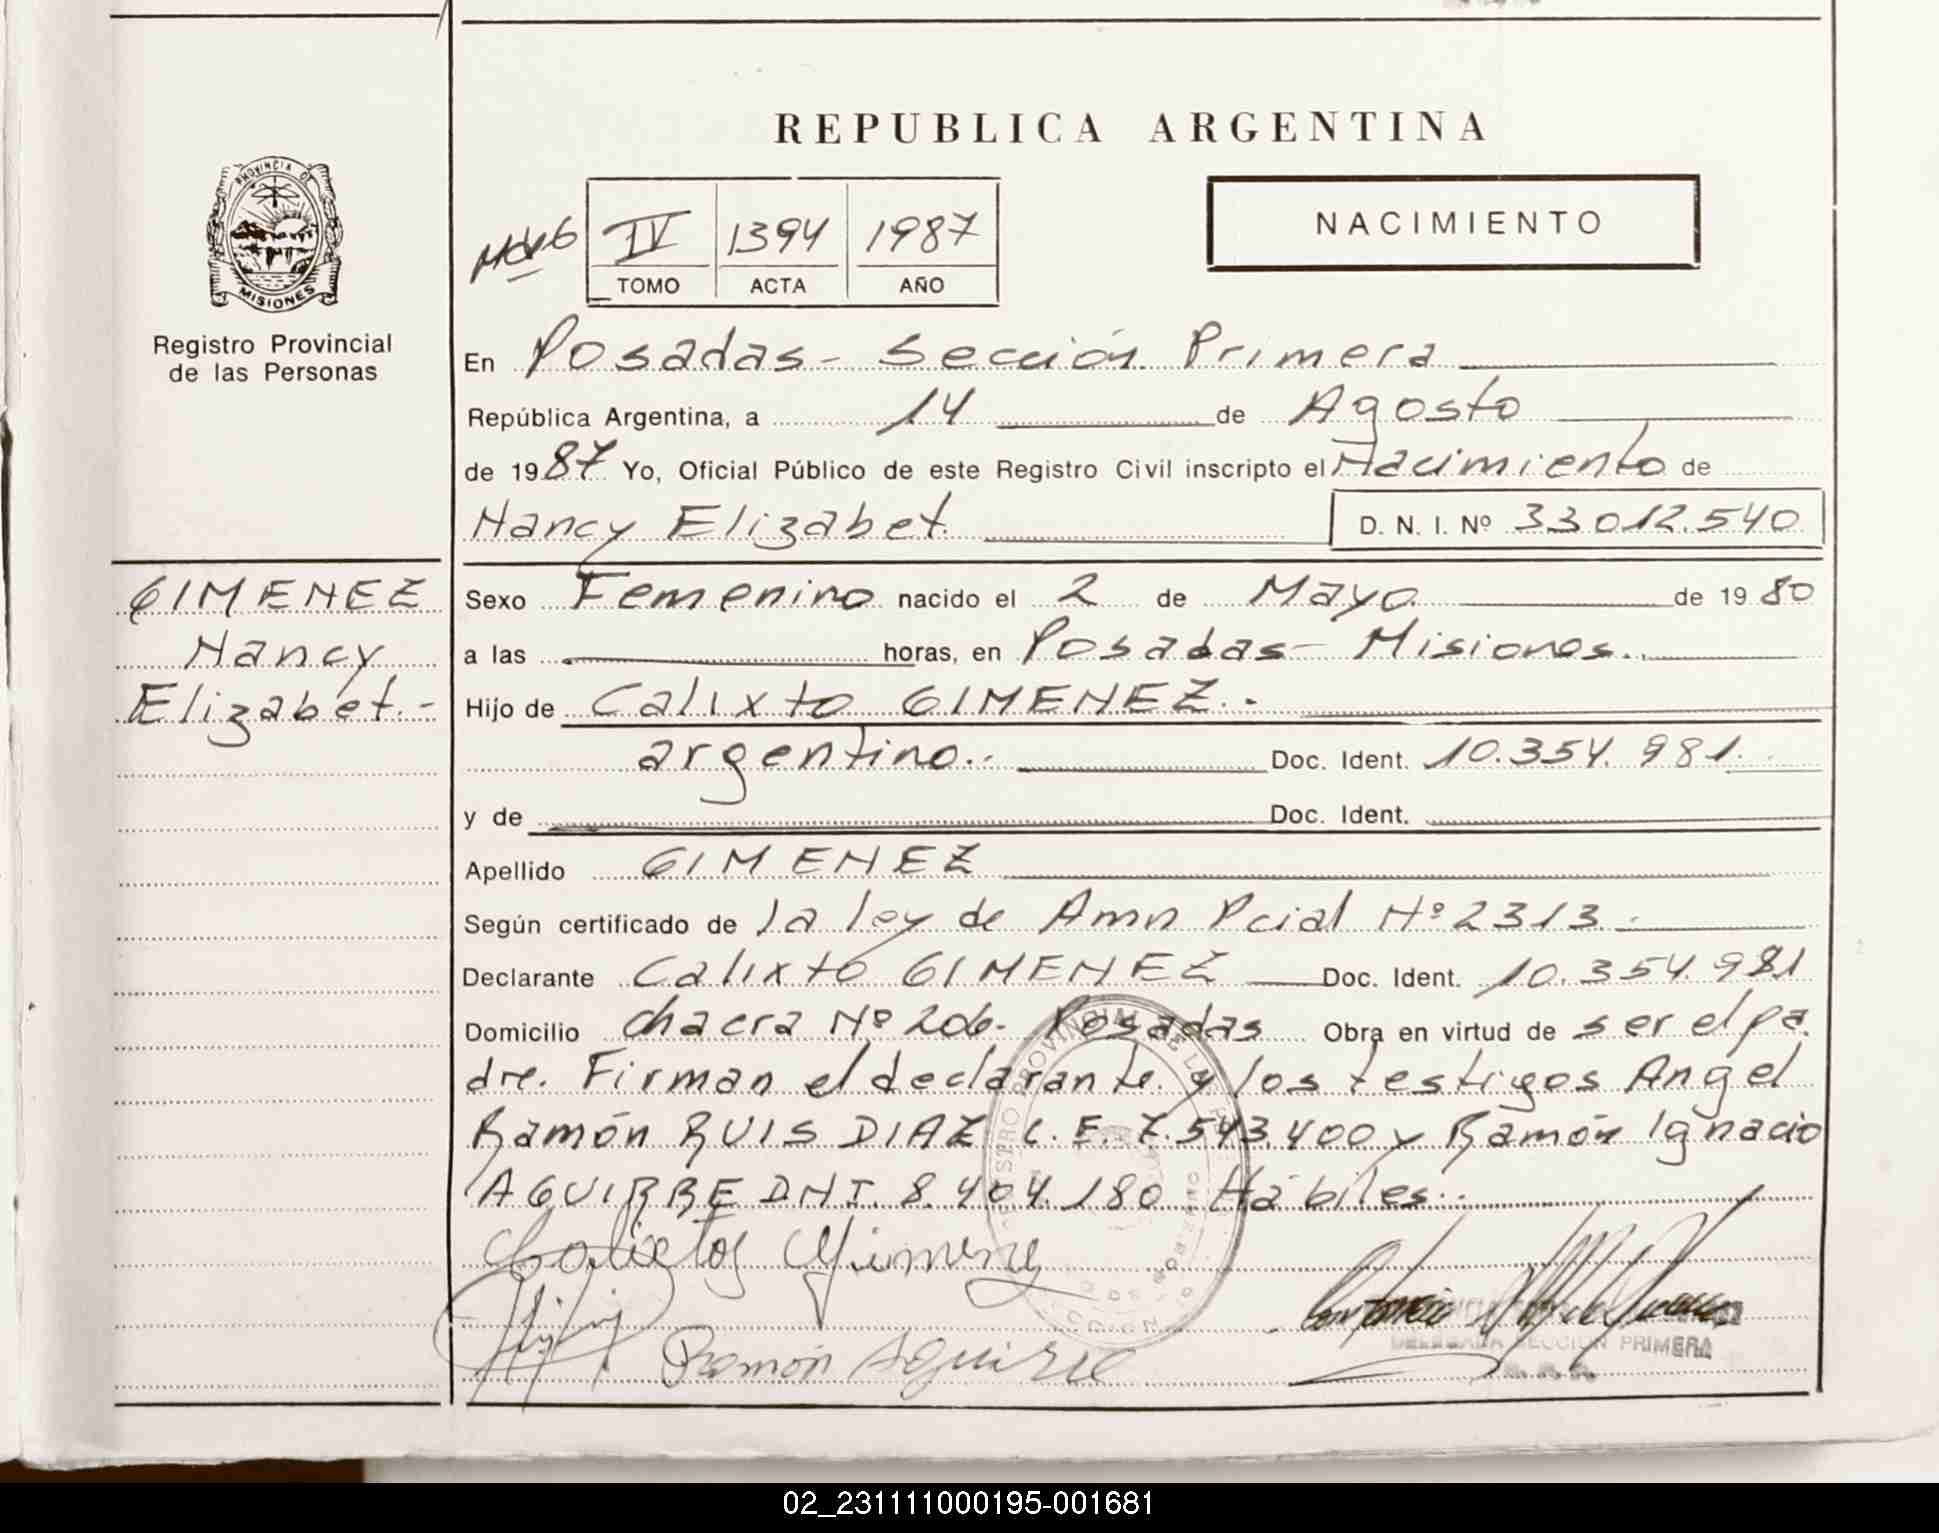 REPUBLICA ARGENTINA
PROVINCIA DE
MISIONES
Registro Provincial
de las Personas
IV 1394 1987
TOMO ACTA AÑO
NACIMIENTO
En Posadas - Sección Primera
República Argentina, a 14 de Agosto
de 1987 Yo, Oficial Público de este Registro Civil inscripto el Nacimiento de
Nancy Elizabet. D. N. I. Nº 33.012.540
GIMENEZ
Nancy
Elizabet.-
Sexo Femenino nacido el 2 de Mayo de 1980
a las horas, en Posadas - Misiones.
Hijo de Calixto GIMENEZ.-
argentino.- Doc. Ident. 10.354.981.
y de Doc. Ident.
Apellido GIMENEZ
Según certificado de la ley de Amn Pcial Nº 2313.
Declarante Calixto GIMENEZ Doc. Ident. 10.354.981
Domicilio chacra Nº 206- Posadas Obra en virtud de ser el pa
dre. Firman el declarante y los testigos Angel
Ramón RUIS DIAZ C.E. 7.543.400 y Ramón Ignacio
AGUIRRE D.N.I. 8.404.180 Hábiles.-
Ramón Aguirre
DELEGADA SECCION PRIMERA
02_231111000195-001681